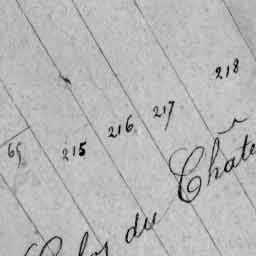 218
217
216
215
65
Clos du Châte